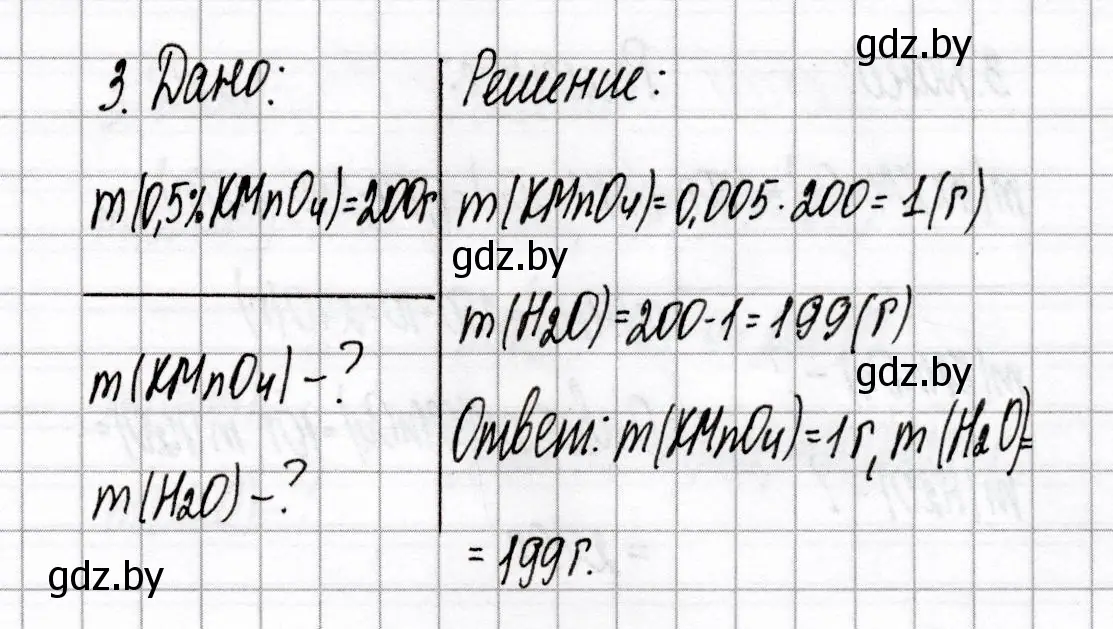 gdz.by
3. Дано:
m(0,5% KMnO4)=200г
m(KMnO4) – ?
m(H2O) – ?
gdz.by
Решение:
m(KMnO4)=0,005·200=1(г)
gdz.by
m(H2O)=200-1=199(г)
gdz.by
Ответ: m(KMnO4)=1г, m(H2O)=
=199г.